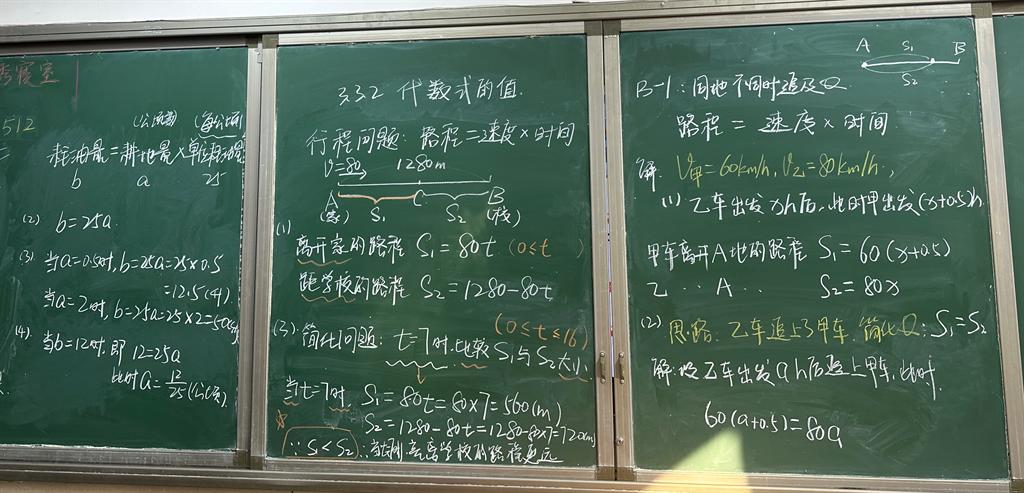 寝室
512
(公顷) (每公顷)
耗油量=耕地量×单位耗油量
b a 25
(2) b=25a
(3) 当a=0.5时,b=25a=25×0.5
=12.5(升)
当a=2时,b=25a=25×2=50(升)
(4) 当b=12时,即 12=25a
此时a=12/25(公顷)
3.3.2 代数式的值.
行程问题: 路程=速度×时间
V=80, 1280m
A C B
(家) S₁ S₂ (校)
(1)
离开家的路程 S₁=80t (0≤t )
距学校的路程 S₂=1280-80t
(0≤t≤16)
(3) 简化问题: t=7时.比较S₁与S₂大小
当t=7时, S₁=80t=80×7=560(m)
S₂=1280-80t=1280-80×7=720(m)
∵ S₁<S₂ ∴ 离学校的路程更远
A S₁ B
S₂
B-1: 同地不同时追及Q
路程 = 速度×时间
解: V甲=60km/h, V乙=80km/h,
(1) 乙车出发xh后,此时甲出发(x+0.5)h
甲车离开A地的路程 S₁=60(x+0.5)
乙 ‥ A ‥ S₂=80x
(2) 思路: 乙车追上了甲车. 简化Q: S₁=S₂
解:设乙车出发ah后追上甲车,此时.
60(a+0.5)=80a